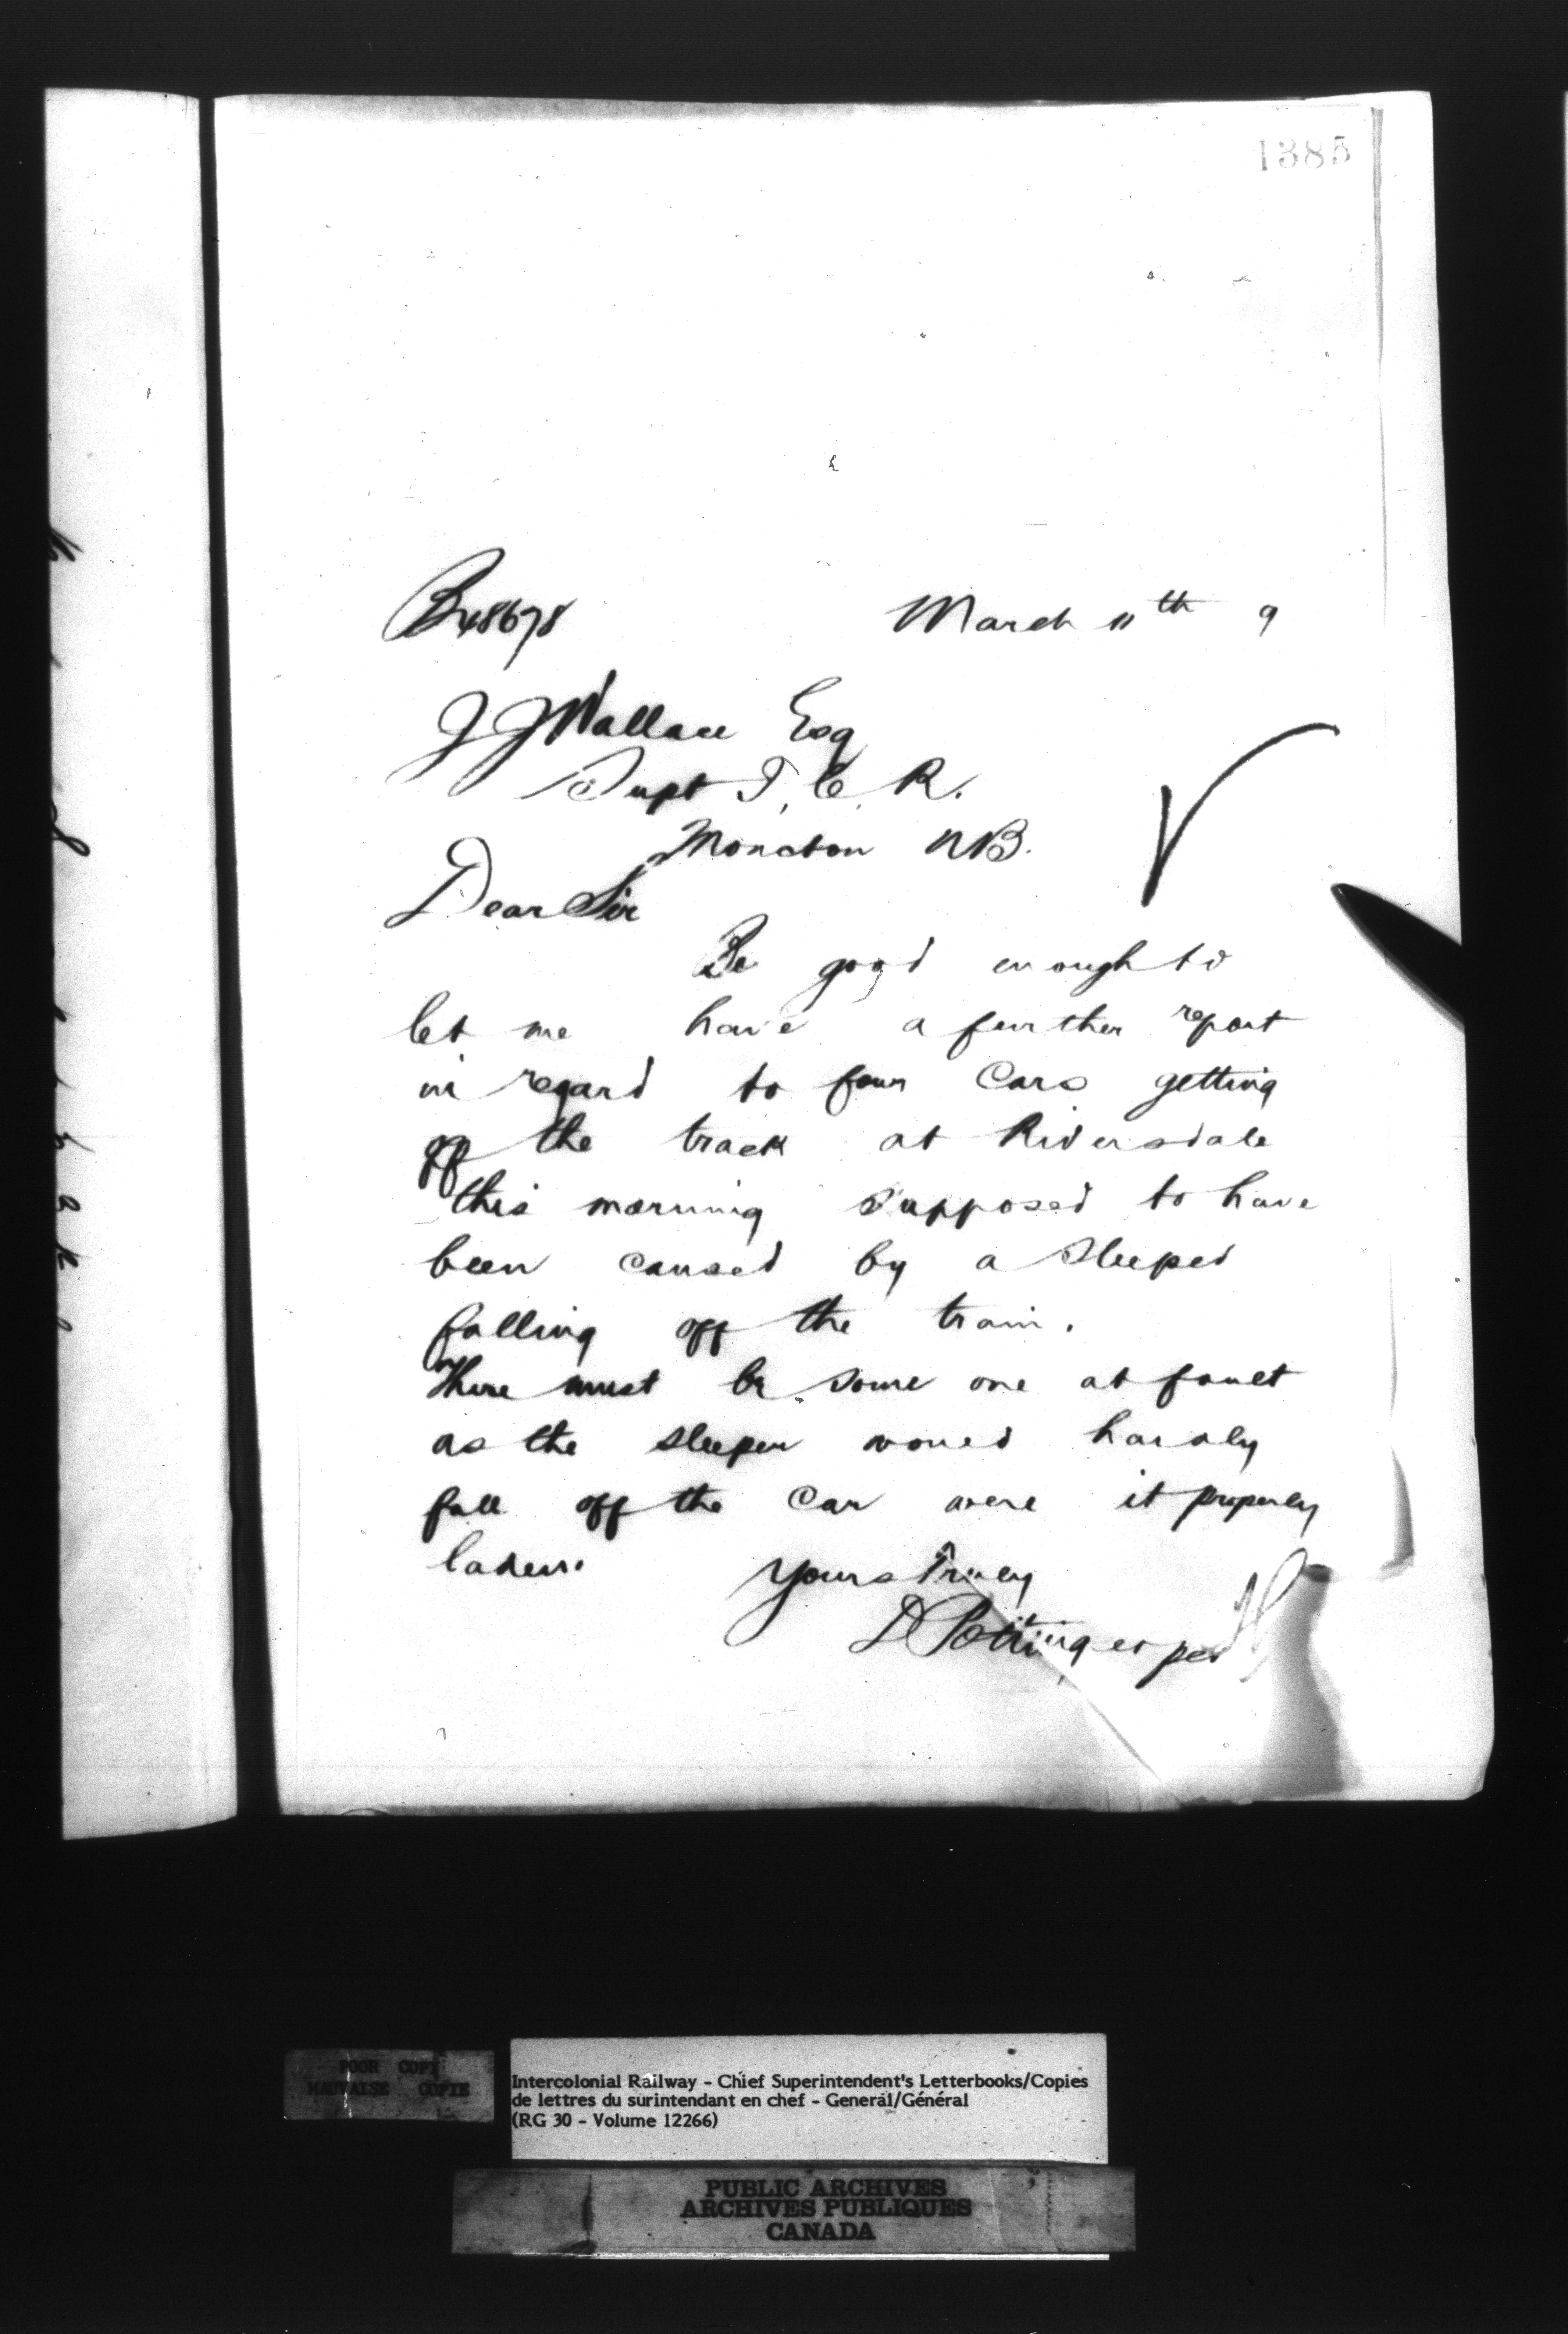 1385
B48678 March 11th 9
J J Wallace Esq
Supt I. C. R.
Moncton NB.
Dear Sir
Be good enough to
let me have a further report
in regard to four Cars getting
off the track at Riversdale
this morning supposed to have
been caused by a Sleeper
falling off the train.
There must be some one at fault
as the sleeper would hardly
fall off the Car were it properly
laden.
Yours Truly
D Pottinger per
POOR COPY
MAUVAISE COPIE
Intercolonial Railway - Chief Superintendent's Letterbooks/Copies
de lettres du surintendant en chef - General/Général
(RG 30 - Volume 12266)
PUBLIC ARCHIVES
ARCHIVES PUBLIQUES
CANADA